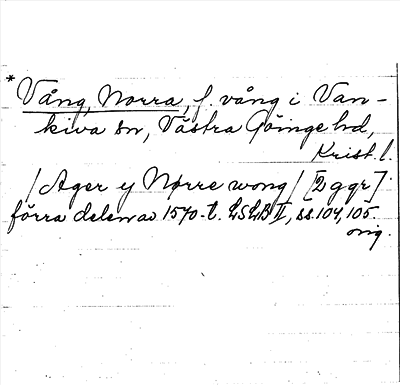 * Vång, Norra, f. vång i Van-
kiva sn, Västra Göinge hd,
Krist. l.
/Ager y Nørre wong/ [2 ggr].
förra delen av 1570-t. LSLB II, ss. 104, 105.
orig.